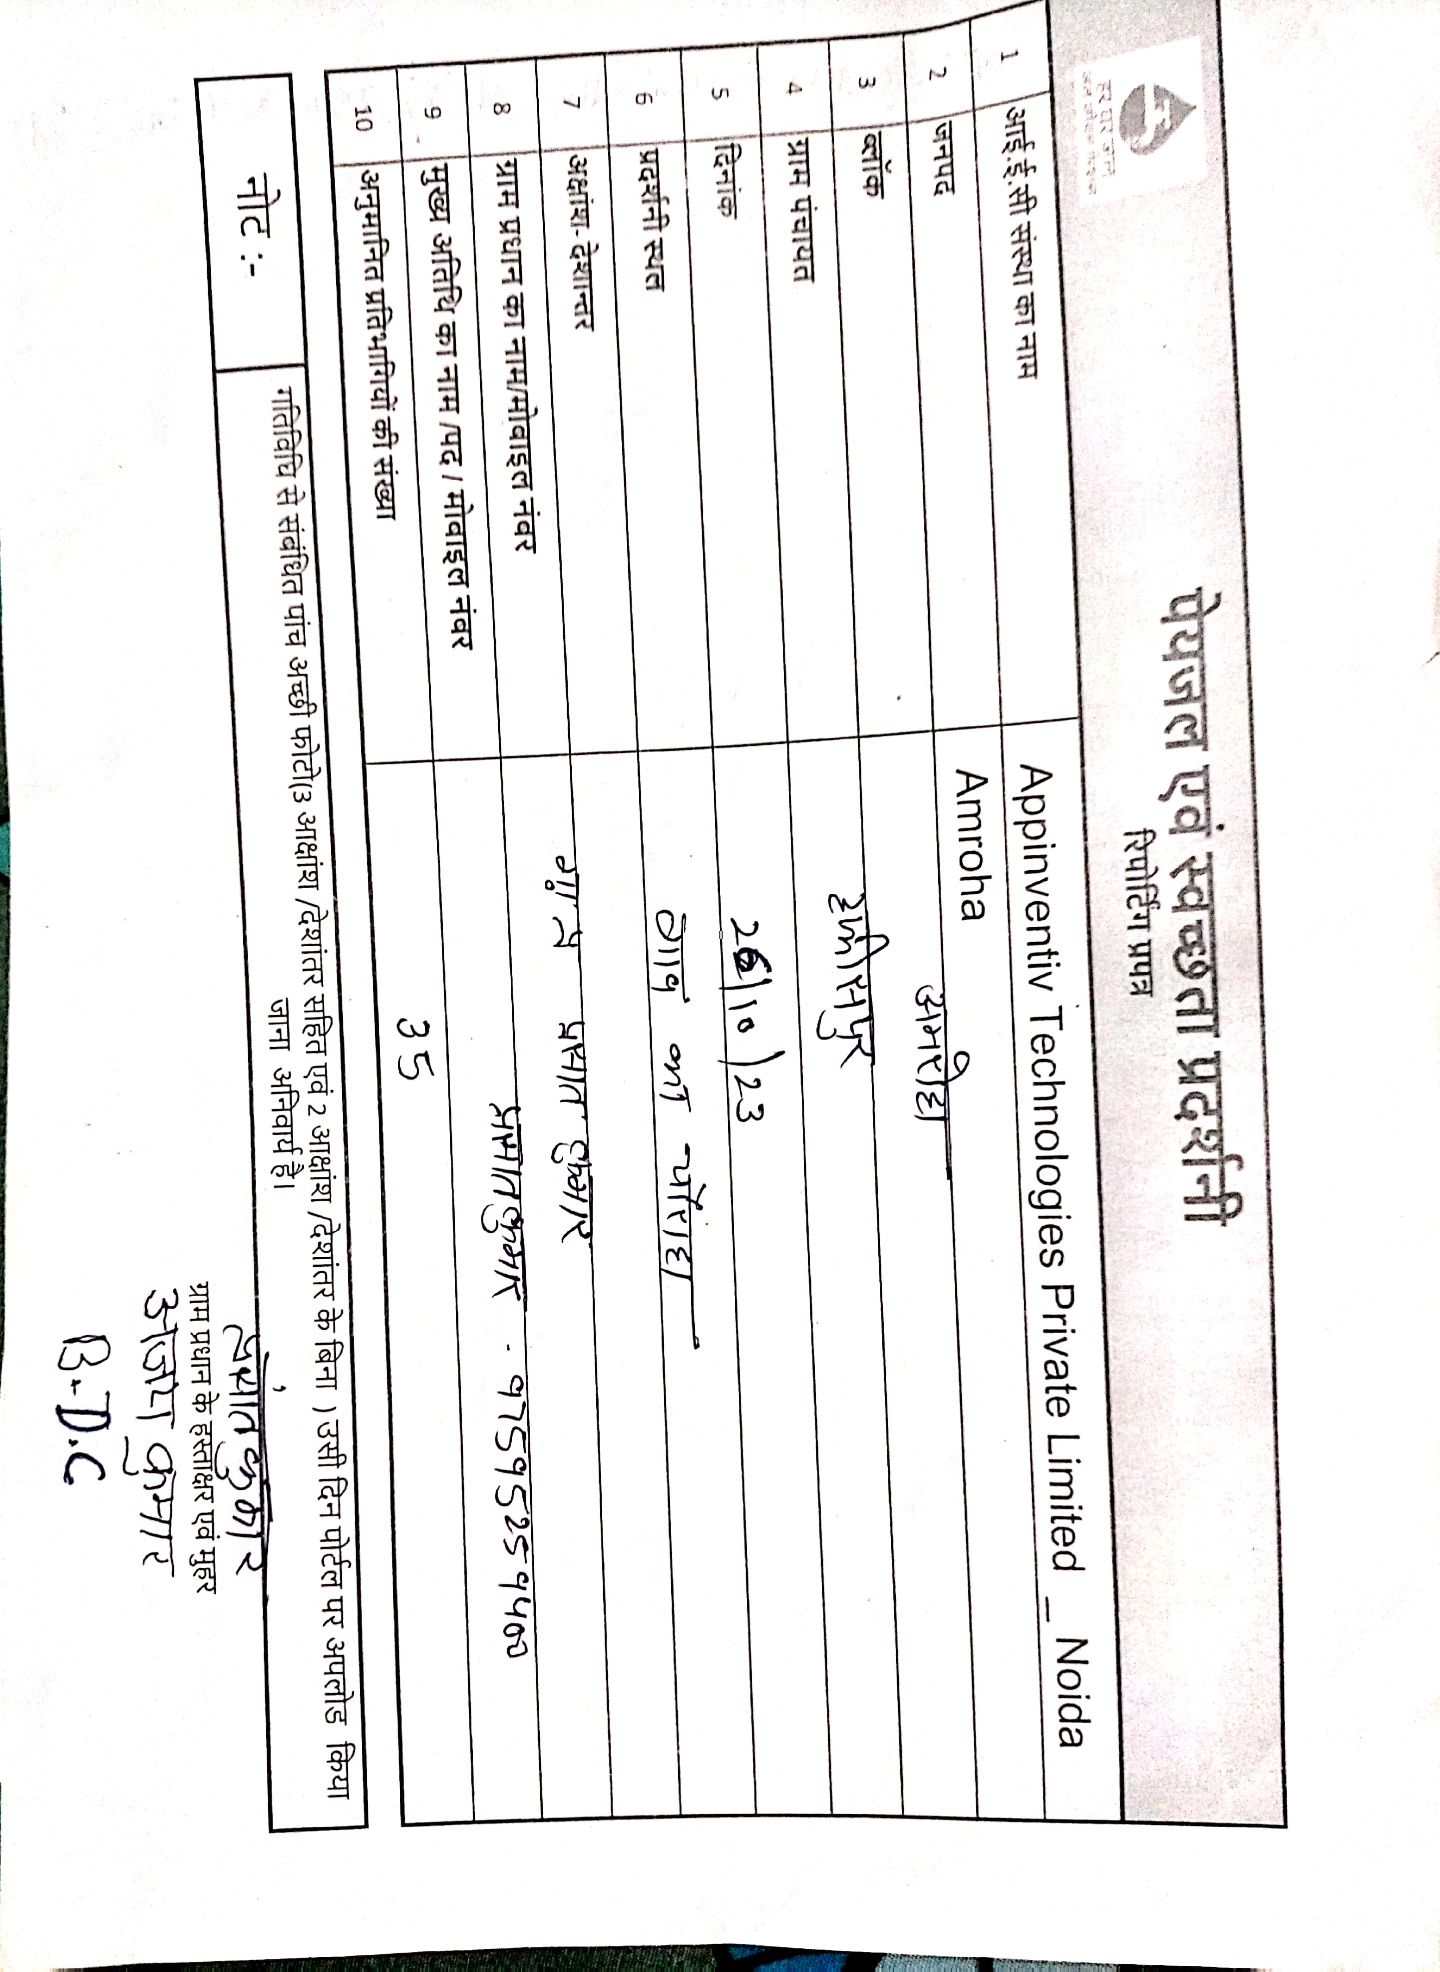 पेयजल एवं स्वच्छता प्रदर्शनी
रिपोर्टिंग प्रपत्र
हर घर जल
1 आई.ई.सी संस्था का नाम Appinventiv Technologies Private Limited _ Noida
2 जनपद Amroha
3 ब्लॉक अमरोहा
4 ग्राम पंचायत
5 दिनांक 26/10/23
6 प्रदर्शनी स्थल गाव का चौराहा
7 अक्षांश-देशान्तर
8 ग्राम प्रधान का नाम/मोबाइल नंबर प्रभात कुमार
9 मुख्य अतिथि का नाम /पद / मोबाइल नंबर प्रभात कुमार - 9759525400
10 अनुमानित प्रतिभागियों की संख्या 35
नोट :- गतिविधि से संबंधित पांच अच्छी फोटो(3 आक्षांश /देशांतर सहित एवं 2 आक्षांश /देशांतर के बिना ) उसी दिन पोर्टल पर अपलोड किया
जाना अनिवार्य है।
ग्राम प्रधान के हस्ताक्षर एवं मुहर
कुमार
B.D.C